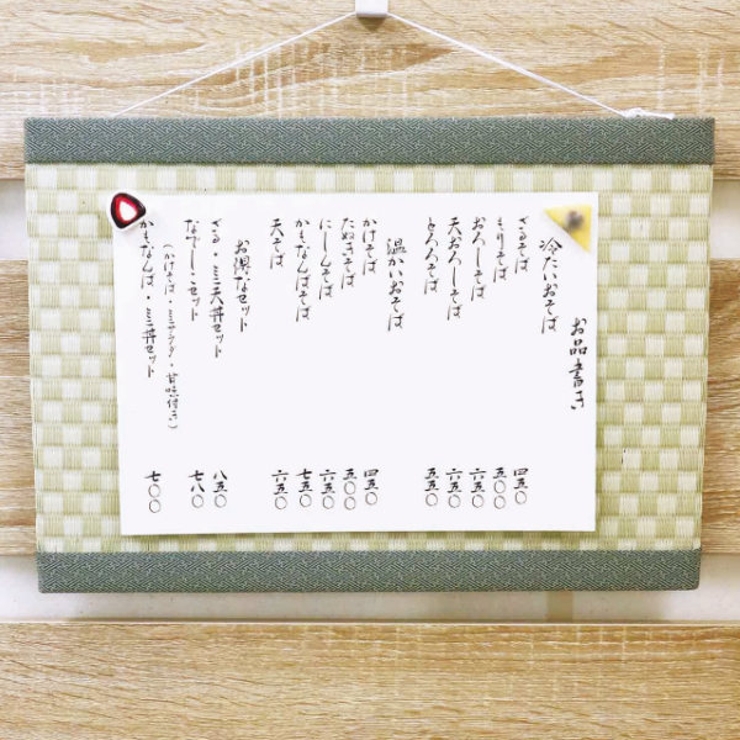 お品書き
冷たいおそば
ざるそば 四五〇
もりそば 五〇〇
おろしそば 六五〇
天おろしそば 六五〇
とろろそば 五五〇
温かいおそば
かけそば 四五〇
たぬきそば 五〇〇
にしんそば 六五〇
かもなんばそば 七五〇
天そば 六五〇
お得なセット
ざる・ミニ天丼セット 八五〇
なでしこセット 七八〇
(かけそば・ミニサラダ・甘味付き)
かもなんば・ミニ丼セット 七〇〇